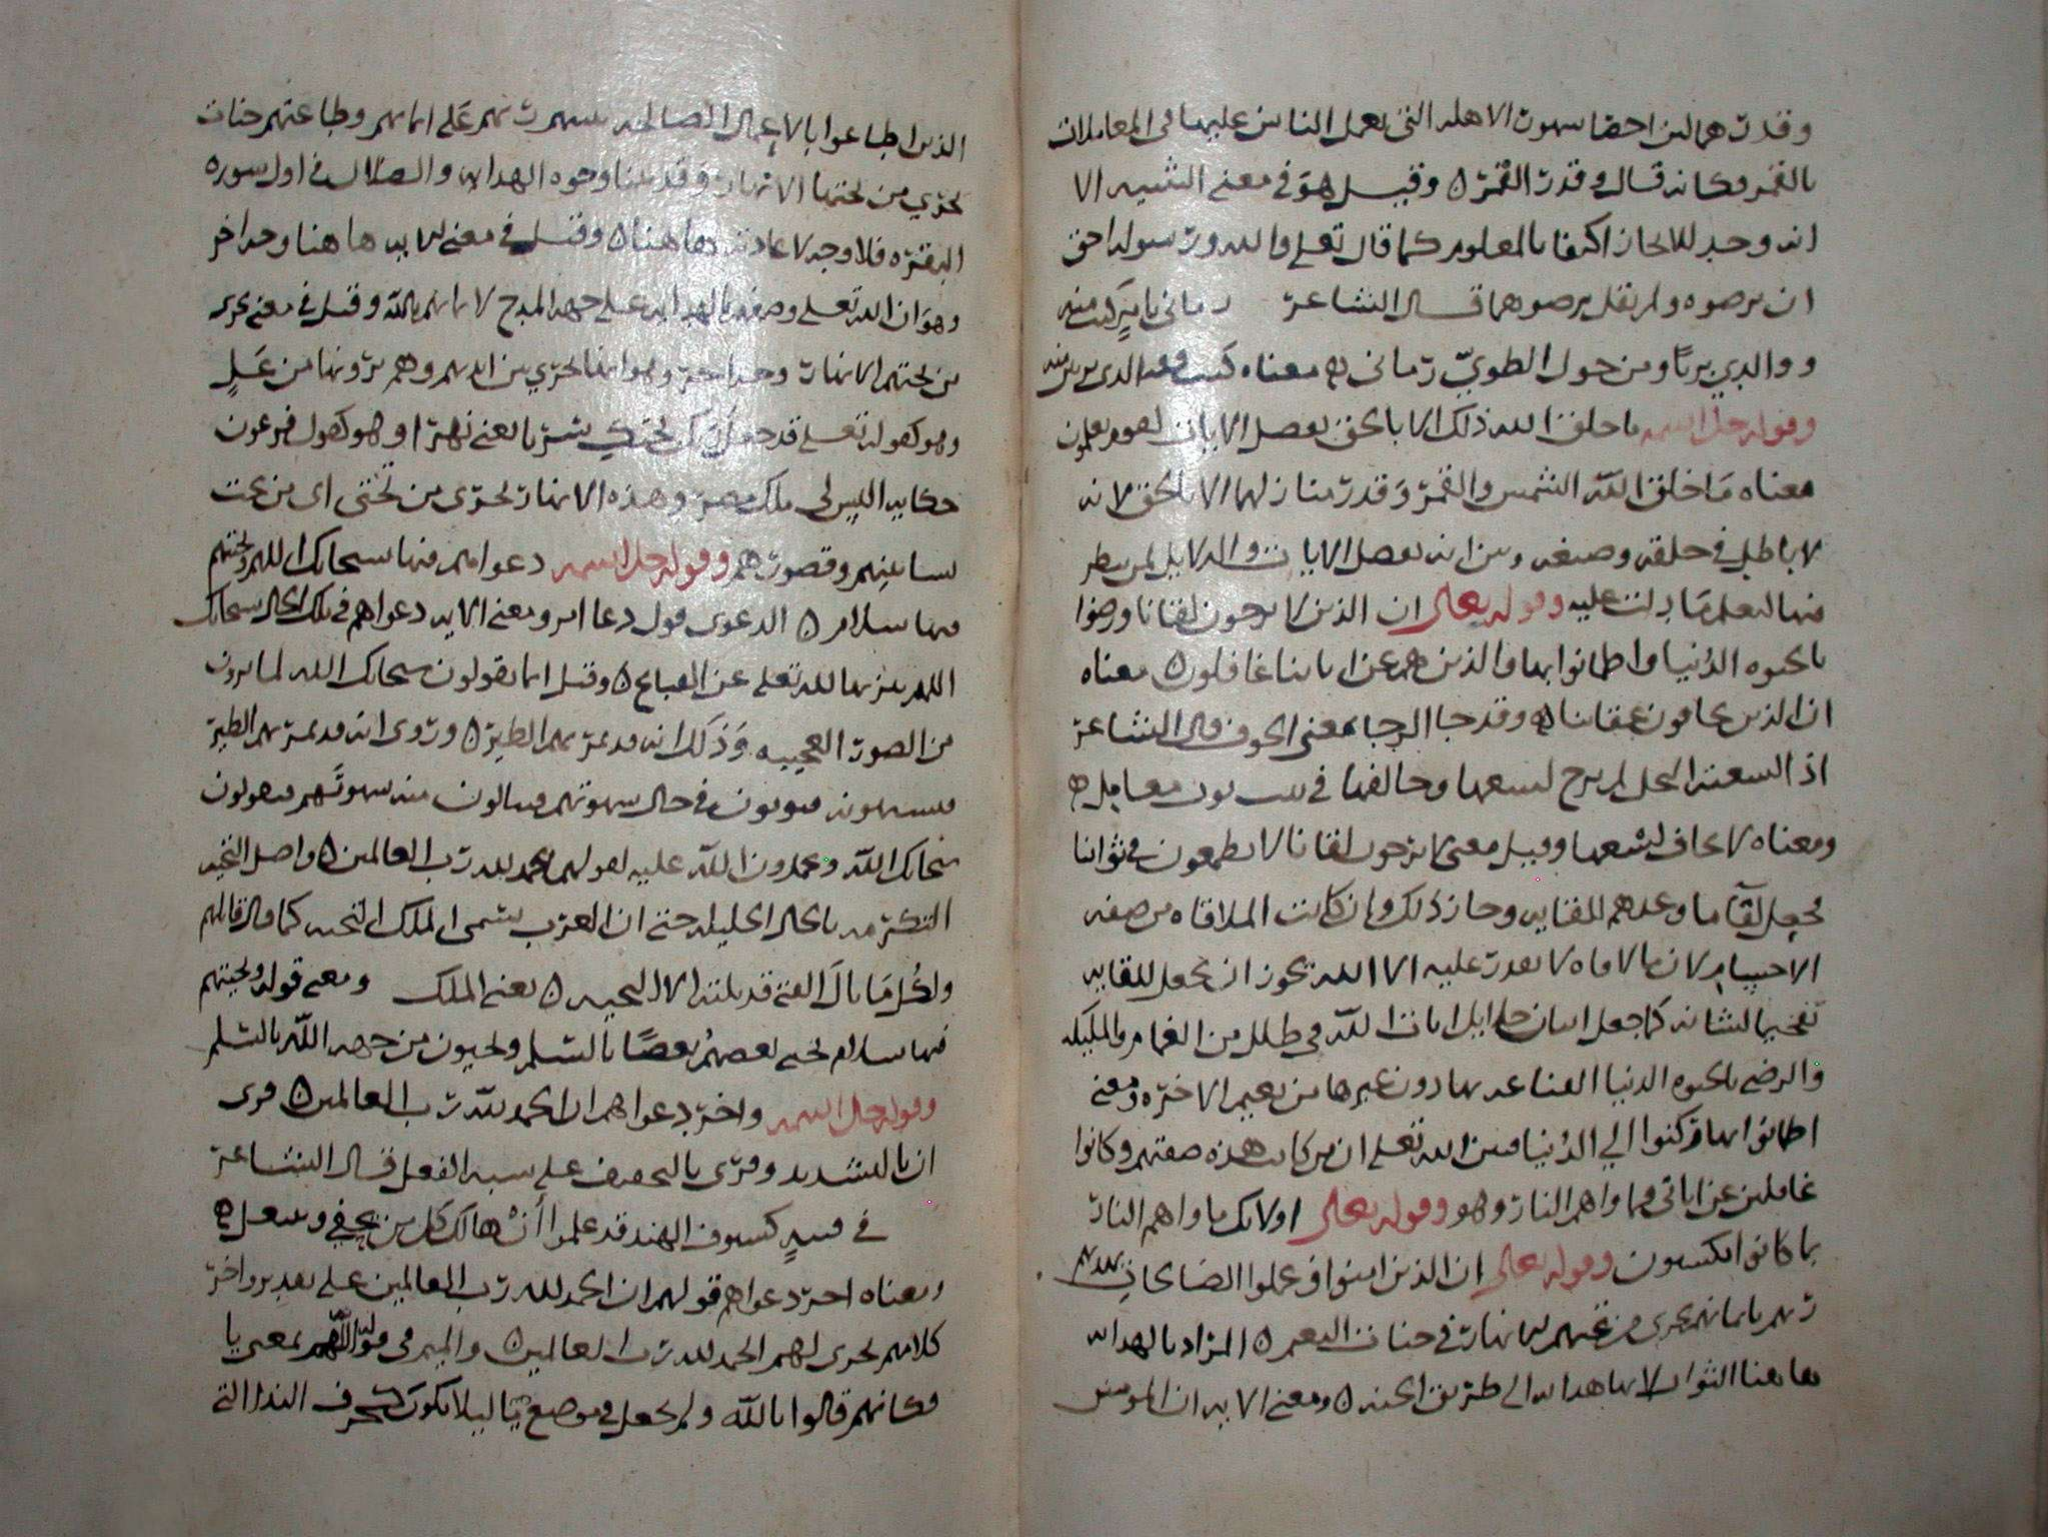 وقدرهما لان احصا شهور الاهله التي يعمل الناس عليها في المعاملات
بالقمر فكانه قال وقدر القمر ٥ وقيل هو في معنى التثنيه الا
انه وحد للايجاز اكتفا بالمعلوم كما قال تعلى والله ورسوله احق
ان يرضوه ولم يقل يرضوهما قال الشاعر رماني بامر كنت منه
ووالدي بريا ومن جول الطوي رماني ٥ معناه كنت منه
وقوله جل اسمه ما خلق الله ذلك الا بالحق يفصل الايات لقوم يعلمون
معناه ما خلق الله الشمس والقمر وقدر منازلهما الا بالحق لانه
لا باطل في خلقه وصنعه وبين انه يفصل الايات والدلايل لمن ينظر
فيها ليعلم ما دلت عليه وقوله تعالى ان الذين لا يرجون لقانا ورضوا
بالحيوه الدنيا واطمانوا بها والذين هم عن اياتنا غافلون ٥ معناه
ان الذين يخافون عقابنا ٥ وقد جا الرجا بمعنى الخوف قال الشاعر
اذا لسعته النحل لم يرج لسعها وحالفها في بيت نوب عوامل ٥
ومعناه لا يخاف لسعها وقيل معنى لا يرجون لقانا لا يطمعون في ثوابنا
فجعل لقا ما وعدهم للقايه وجاز ذلك وان كانت الملاقاه من صفه
الاجسام لان ما لا يقدر عليه الا الله يجوز ان يجعل للقايه
تفخيما لشانه كما جعل اتيان جلايل ايات الله في ظلل من الغمام والمليكه
والرضى بالحيوه الدنيا القناعه بها دون غيرها من نعيم الاخره ومعنى
اطمانوا بها وركنوا الي الدنيا فبين الله تعلى ان من كانت هذه صفتهم وكانوا
غافلين عن اياتي فماواهم النار وهو وقوله تعالى اولائك ماواهم النار
بما كانوا يكسبون وقوله تعالى ان الذين امنوا وعملوا الصالحات يهديهم
ربهم بايمانهم تجري من تحتهم الانهار في جنات النعيم ٥ المراد بالهدايه
هاهنا الثواب لانها هدايه الى طريق الجنه ٥ ومعنى الايه ان المومنين
الذين اطاعوا بالاعمال الصالحه يهديهم ربهم على ايمانهم وطاعتهم جنات
تجري من تحتها الانهار وقد بينا وجوه الهدايه والضلال في اول سوره
البقره فلا وجه لاعادته هاهنا ٥ وقيل في معنى الهدايه هاهنا وجه اخر
وهو ان الله تعلى وصفهم بالهدايه على جهه المدح لايمانهم بالله وقيل في معنى تجري
من تحتهم الانهار وجه اخر وهو انها تجري بين ايديهم وهم يرونها من عل
وهو كقوله تعلى قد جعل ربك تحتك سريا يعنى نهرا وهو كقول فرعون
حكايه اليس لي ملك مصر وهذه الانهار تجري من تحتى اي من تحت
بساتينهم وقصورهم وقوله جل اسمه دعواهم فيها سبحانك اللهم وتحيتهم
فيها سلام ٥ الدعوى قول دعا ومعنى الايه دعواهم في تلك الحال سبحانك
اللهم تنزيها لله تعلى عن القبايح ٥ وقيل انما يقولون سبحانك الله لما يرون
من الصور العجيبه وذلك انه قد يمر بهم الطير ٥ وروى انه قد يمر بهم الطير
فيشتهونه فيوتون في حال شهوتهم فينالون منه شهوتهم فيقولون
سبحانك الله ويحمدون الله عليه لقولهم الحمد لله رب العالمين ٥ واصل التحيه
التكرمه بالحال الجليله حتى ان العرب يسمى الملك التحيه كما قال قايلهم
ولكل ما نال الفتى قد نلته الا التحيه ٥ يعنى الملك ومعنى قوله وتحيتهم
فيها سلام تحيى بعضهم بعضا بالسلم وتحيون من جهه الله بالسلم
وقوله جل اسمه واخر دعواهم ان الحمد لله رب العالمين ٥ قرى
ان بالتشديد وقرى بالتخفيف على شبه الفعل قال الشاعر
في فتيه كسيوف الهند قد علموا ان هالك كل من يحفى وينتعل ٥
ومعناه اخر دعواهم قولهم ان الحمد لله رب العالمين على تقدير واخر
كلامهم يجرى لهم الحمد لله رب العالمين ٥ والميم في قوله اللهم بمعنى يا
فكانهم قالوا يا الله ولم يجعل في موضع يا ليلا يكون كحرف الندا التي